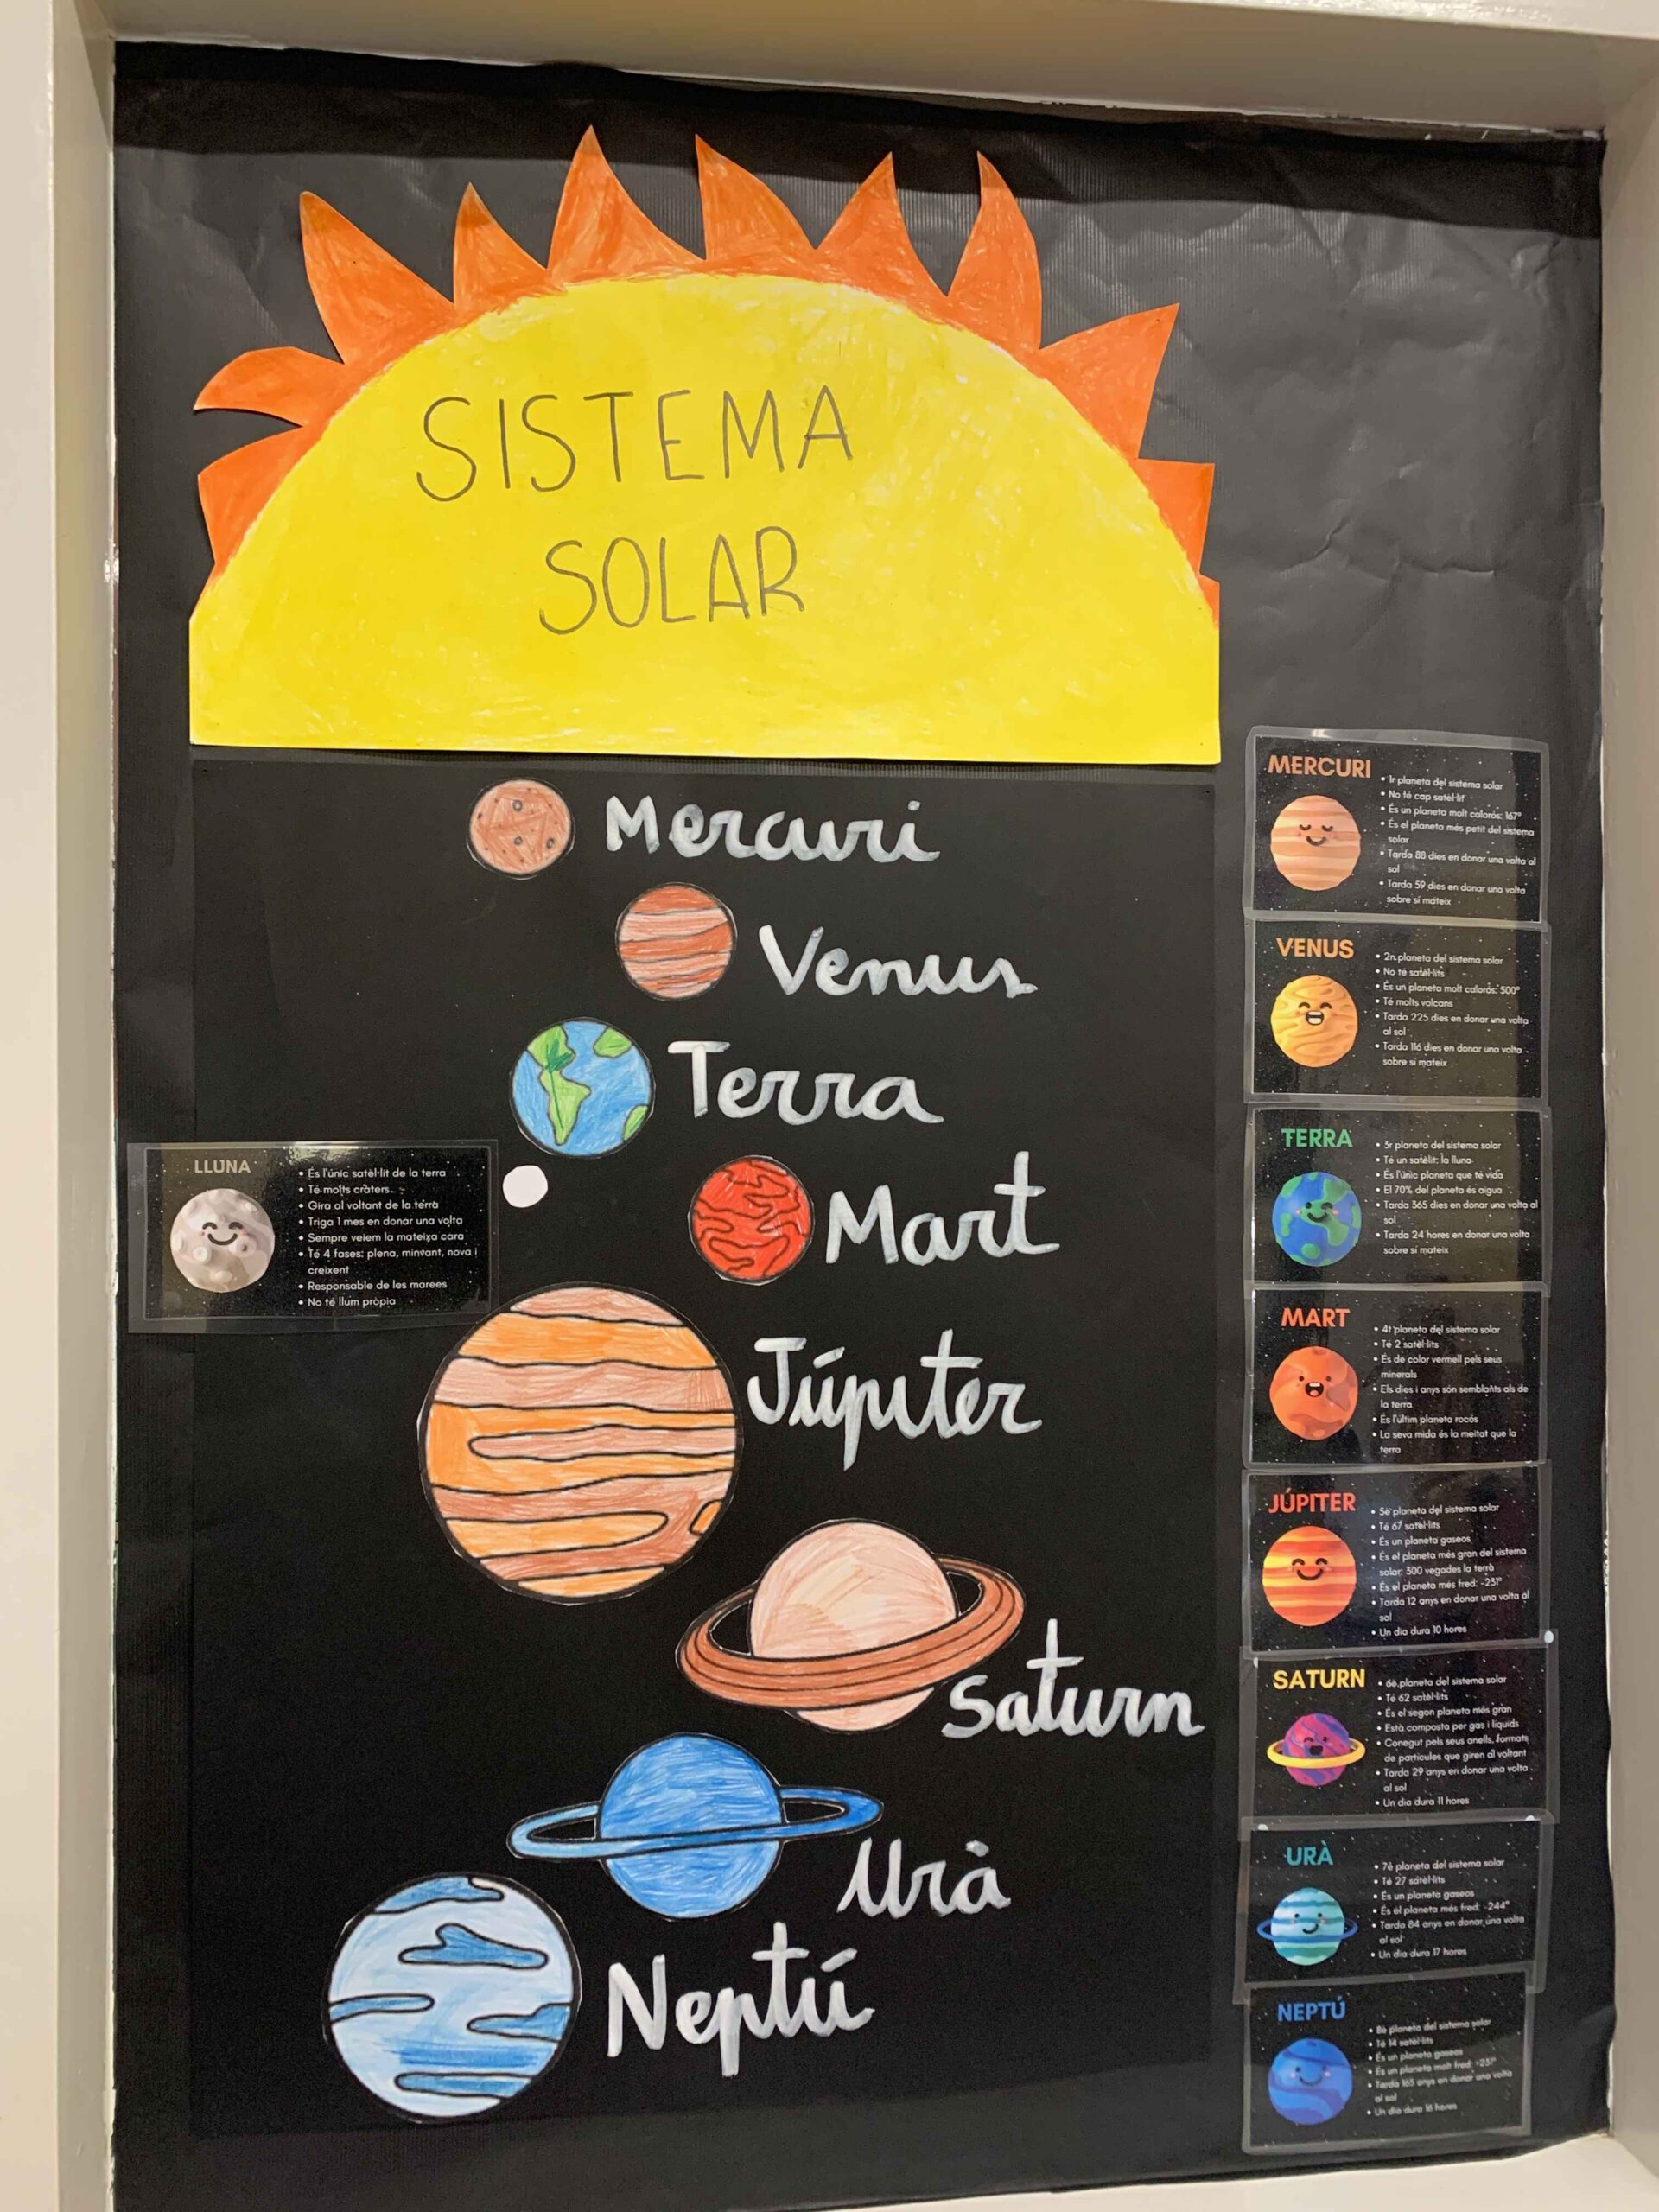 SISTEMA
SOLAR
Mercuri
Venus
Terra
Mart
Júpiter
Saturn
Urà
Neptú
LLUNA
• És l'únic satèl·lit de la terra
• Té molts cràters
• Gira al voltant de la terra
• Triga 1 mes en donar una volta
• Sempre veiem la mateixa cara
• Té 4 fases: plena, minvant, nova i
creixent
• Responsable de les marees
• No té llum pròpia
MERCURI
• 1r planeta del sistema solar
• No té cap satèl·lit
• És un planeta molt calorós: 167º
• És el planeta més petit del sistema
solar
• Tarda 88 dies en donar una volta al
sol
• Tarda 59 dies en donar una volta
sobre si mateix
VENUS
• 2n planeta del sistema solar
• No té satèl·lits
• És un planeta molt calorós: 500º
• Té molts volcans
• Tarda 225 dies en donar una volta
al sol
• Tarda 116 dies en donar una volta
sobre si mateix
TERRA
• 3r planeta del sistema solar
• Té un satèl·lit: la lluna
• És l'únic planeta que té vida
• El 70% del planeta és aigua
• Tarda 365 dies en donar una volta al
sol
• Tarda 24 hores en donar una volta
sobre si mateix
MART
• 4t planeta del sistema solar
• Té 2 satèl·lits
• És de color vermell pels seus
minerals
• Els dies i anys són semblants als de
la terra
• És l'últim planeta rocós
• La seva mida és la meitat que la
terra
JÚPITER
• 5è planeta del sistema solar
• Té 67 satèl·lits
• És un planeta gaseos
• És el planeta més gran del sistema
solar: 300 vegades la terra
• És el planeta més fred: -231º
• Tarda 12 anys en donar una volta al
sol
• Un dia dura 10 hores
SATURN
• 6è planeta del sistema solar
• Té 62 satèl·lits
• És el segon planeta més gran
• Està composta per gas i líquids
• Conegut pels seus anells, formats
de partícules que giren al voltant
• Tarda 29 anys en donar una volta
al sol
• Un dia dura 11 hores
URÀ
• 7è planeta del sistema solar
• Té 27 satèl·lits
• És un planeta gaseos
• És el planeta més fred: -244º
• Tarda 84 anys en donar una volta
al sol
• Un dia dura 17 hores
NEPTÚ
• 8è planeta del sistema solar
• Té 14 satèl·lits
• És un planeta gaseos
• És un planeta molt fred: -231º
• Tarda 165 anys en donar una volta
al sol
• Un dia dura 16 hores